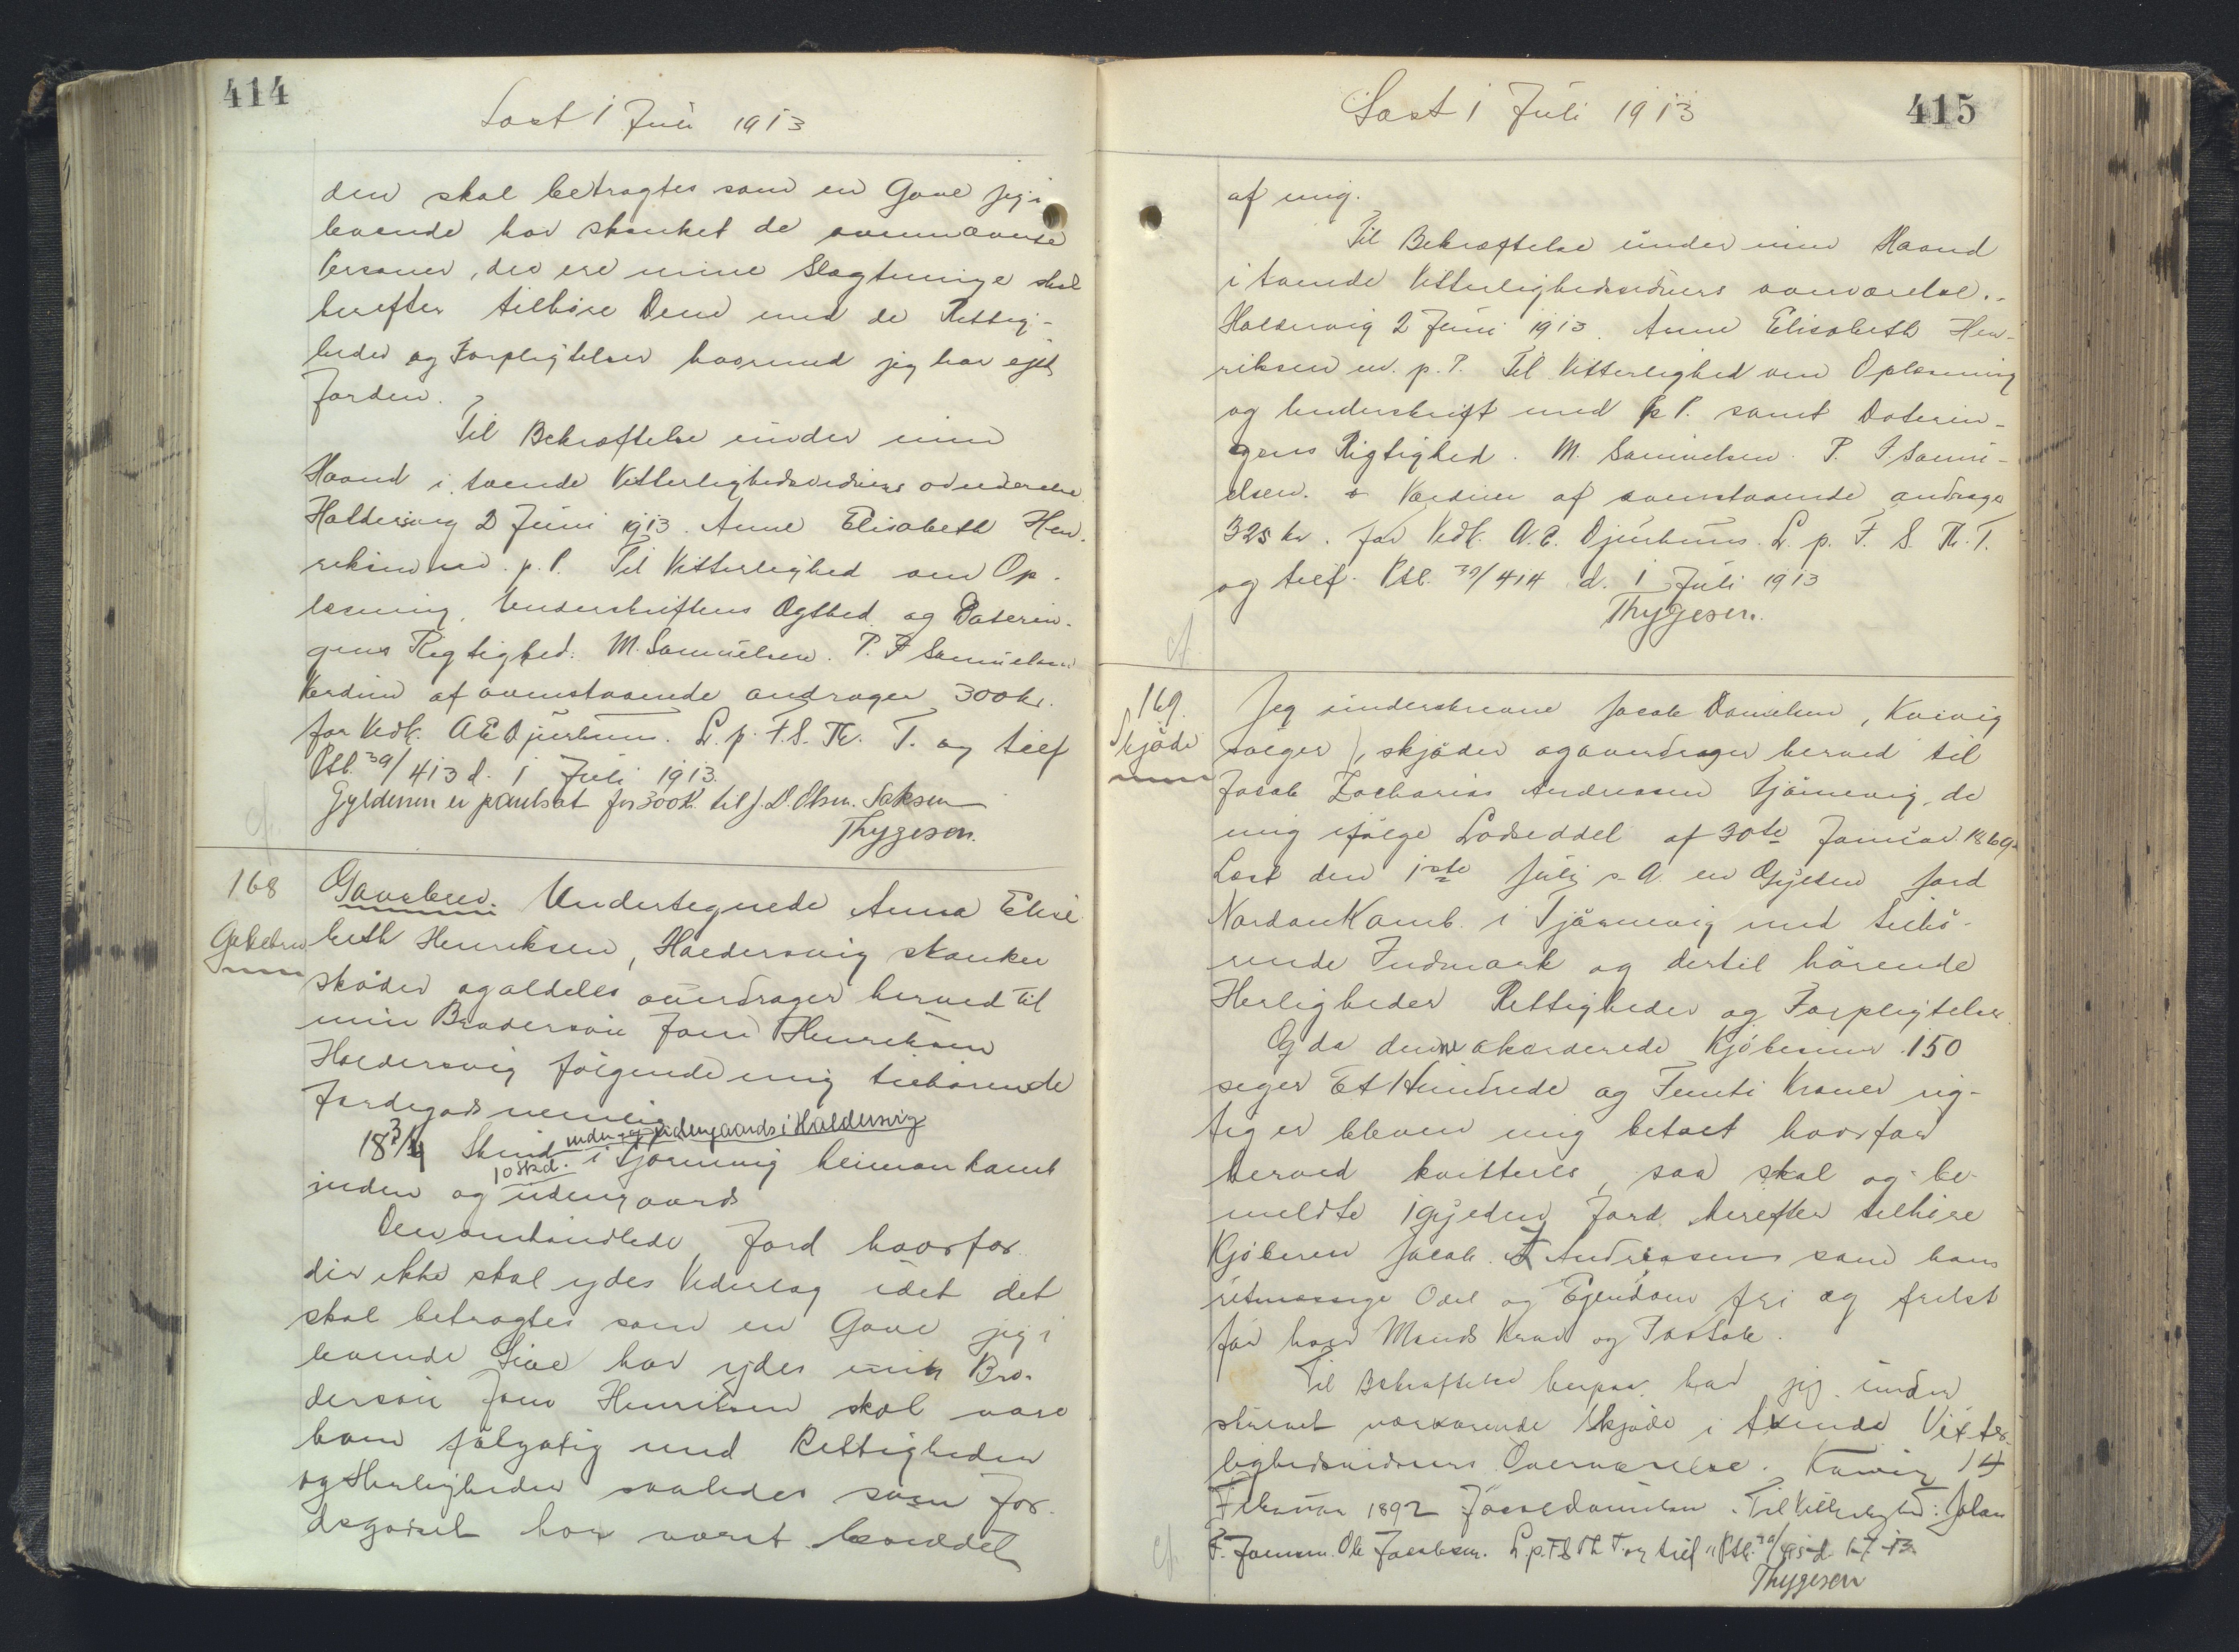 414
Læst 1 Juli 1913
den skal betragtes som en Gave jeg i
levende har skænket de ovennævnte
Personer, der ere mine Slægtninge skal
herefter tilhøre Dem med de Rettig-
heder og Forpligtelser hvormed jeg har ejet
Jorden.
Til Bekræftelse under min
Haand i tvende Vitterlighedsvidners
Haldersvig 2 Juni 1913. Anne Elisabeth Hen-
riksen m. p. P. Til Vitterlighed om Op-
læsning, Underskriftens Ægthed og Daterin-
gens Rigtighed: M. Samuelsen. P. F Samuelsen
Værdien af ovenstaaende andrager 300 kr.
for Vedk. A E Djurhuus. L. p. F. S. Th. T. og tilf
Ptb. 39/413 d. 1 Juli 1913.
Gyldenen er pantsat for 300 K. til J. D. Olsen. Saksen
Thygesen.
cf.
168
Gavebrev
Gavebrev. Undertegnede Anna Elisa
beth Henriksen, Haldersvig skænker
skøder og aldeles overdrager herved til
min Brodersøn Joen Henriksen
Haldersvig følgende mig tilhørende
Jordegods nemlig
inden- og udengaards i Haldersvig
18 3/4 Skind
10 Skd. i Tjørnevig heiman kamb
inden og udengaards
Den omhandlede Jord hvorfor
der ikke skal ydes Vederlag idet det
skal betragtes som en Gave jeg i
levende Live har ydes min Bro-
dersøn Joen Henriksen skal være
ham følgatig med Rettigheder
og Herligheder saaledes som Jor-
degodset har været besiddet
415
Læst 1 Juli 1913
af mig.
Til Bekræftelse under min Haand
i tvende Vitterlighedsvidners overværelse.-
Haldersvig 2 Juni 1913. Anne Elisabeth Hen-
riksen m. p. P. Til Vitterlighed om Oplæsning
og Underskrift med p P. samt Daterin-
gens Rigtighed. M. Samuelsen. P. F Samu-
elsen. Værdien af ovenstaaende andrager
325 kr. for Vedk. A. E. Djurhuus. L. p. F. S. Th. T.
og tilf. Ptb. 39/414 d. 1 Juli 1913
Thygesen.
cf.
169.
Skjøde
Jeg underskrevne Jacob Danielsen, Kvivig
sælger, skjøder og overdrager herved til
Jacob Zacharias Andreasen Tjørnevig, de
mig ifølge Lodseddel af 30te Januar 1869
Læst den 1ste Julij s. A. en Gylden Jord
Nordan Kamb. i Tjørnevig med tilhø-
rende Indmark og dertil hørende
Herligheder Rettigheder og Forpligtelser.
Og da denne akorderede Kjøbesum 150
siger Et Hundrede og Femti Kroner rig-
tig er bleven mig betalt hvorfor
herved kvitteres, saa skal og be-
meldte 1 gylden Jord herefter tilhøre
Kjøberen Jacob. Z Andreasen som hans
retmæssige Odel og Ejendom fri og frelst
for hver Mands Krav og Tiltale.
Til Bekræftelse herpaa har jeg under
skrevet nærværende Skjøde i tvende Vitter-
lighedsvidners Overværelse. Kvivig 14
Februar 1892 Jacob Danielsen. Til Vitterlighed: Johan
F. Joensen. Ole Jacobsen. L. p. F S Th T og tilf " Ptb. 39/415 d. 1-7-13
Thygesen
cf.